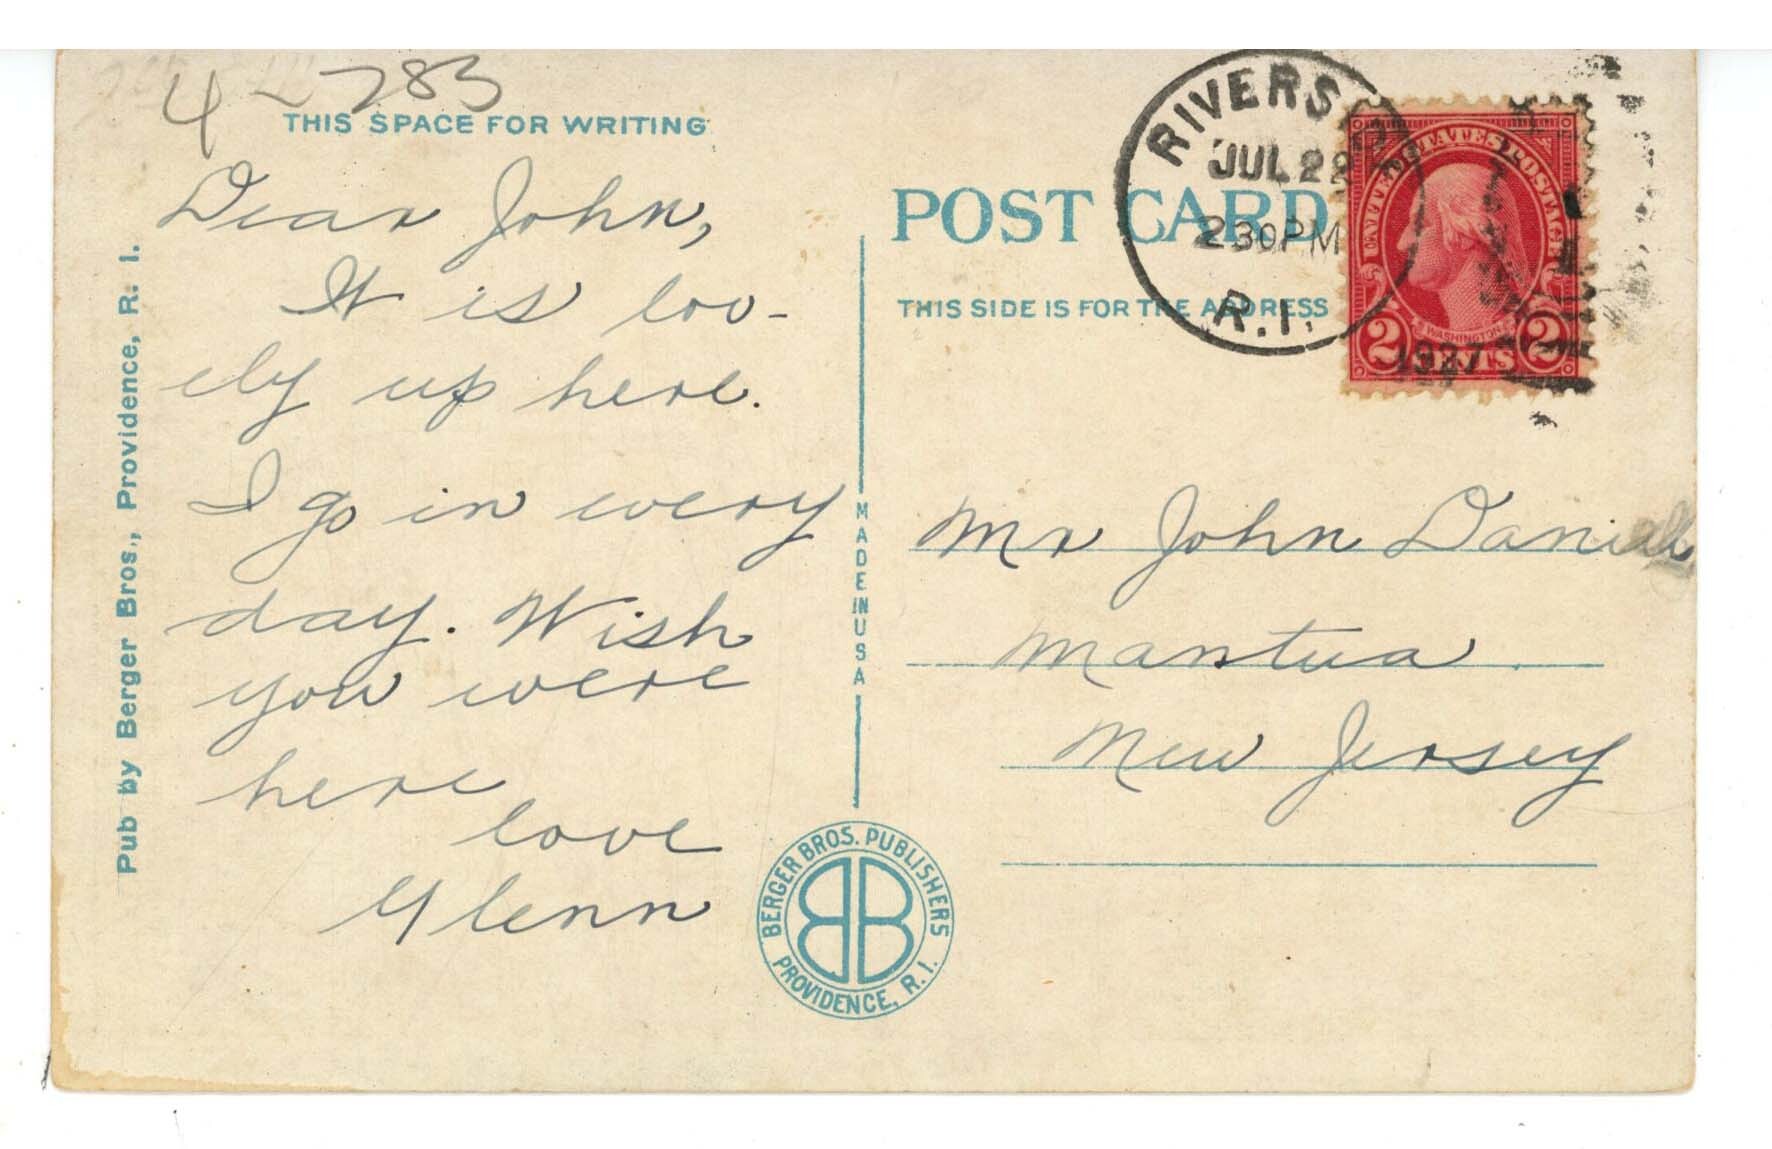 4 783
THIS SPACE FOR WRITING
Dear John,
It is lov-
ely up here.
I go in every
day. Wish
you were
here
love
Glenn
Pub by Berger Bros., Providence, R. I.
MADE IN USA
BERGER BROS. PUBLISHERS
BB
PROVIDENCE, R. I.
POST CARD
THIS SIDE IS FOR THE ADDRESS
RIVERSIDE
JUL 22
230PM
R.I.
1927
UNITED STATES POSTAGE
WASHINGTON
2 CENTS 2
Mr John Daniell
Mantua
New Jersey